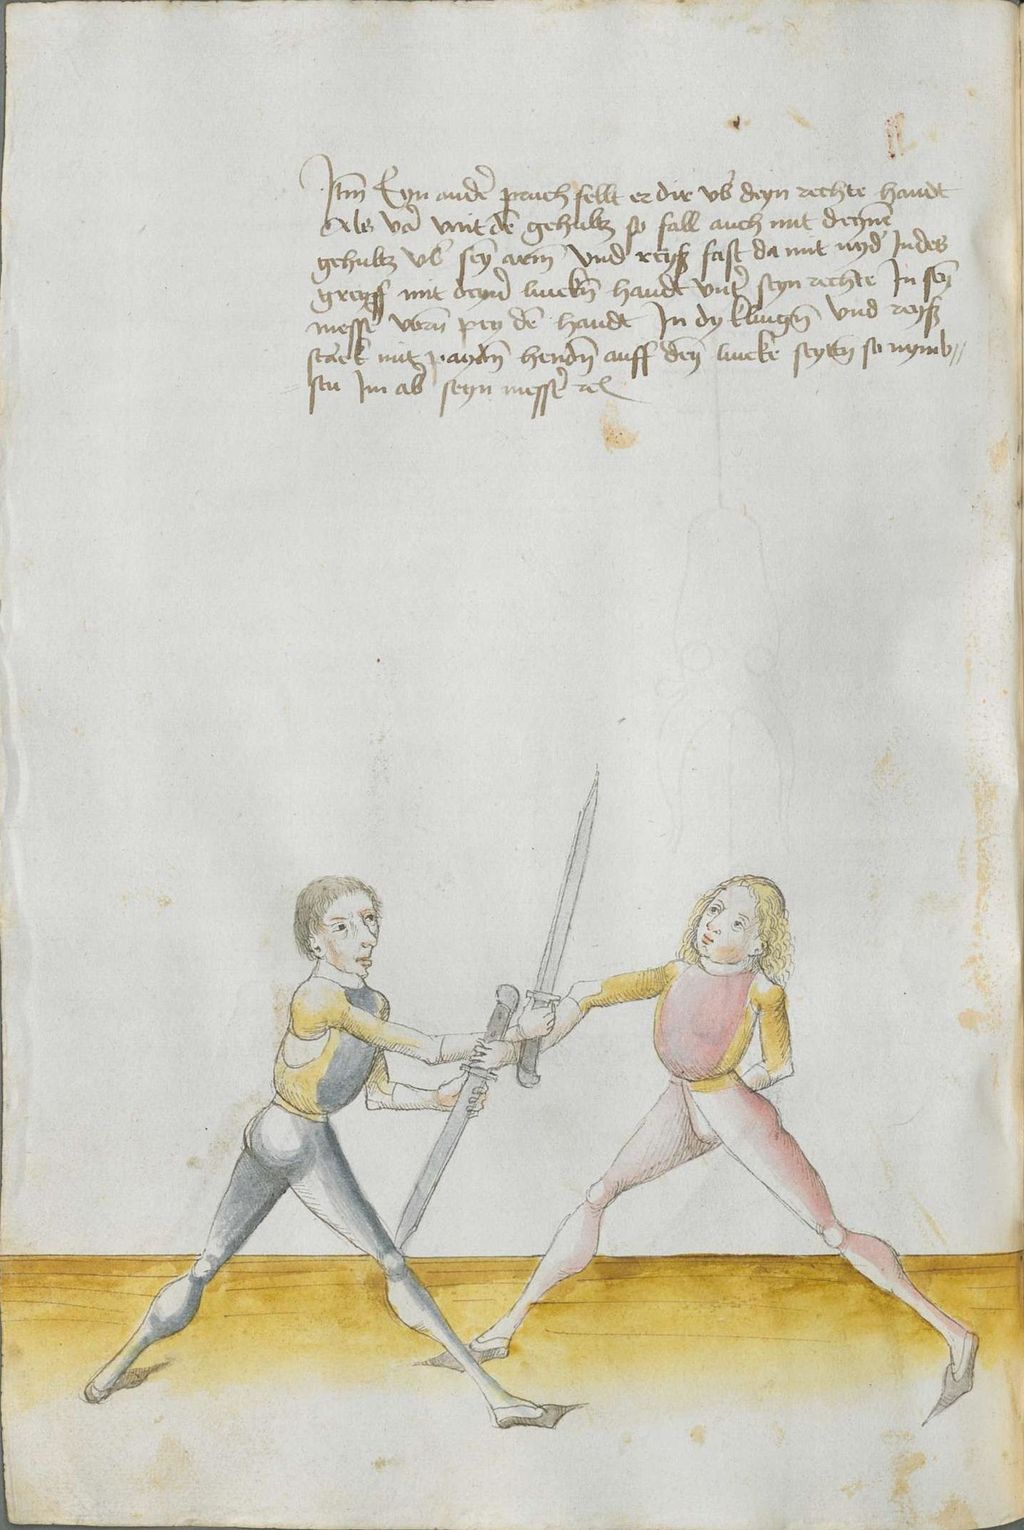 Itm Eyn ander pruch fellt er dir vb̄ deyn rechte handt
Als vor̄ mit dē gehultz so fall auch mit deynē
gehultz vb̄ sey arm vnd reyß fast da mit nyd̄ Indes
greyff mit deyn̄ linckn̄ handt vnt̄ seyn rechte In sey
mess̄ vorn̄ pey dē handt In dy klingn̄ vnd reyß
starck mit paydn̄ hendn̄ auff deȳ lincke seyttn̄ so nymb//
stu Im ab̄ seyn mess̄